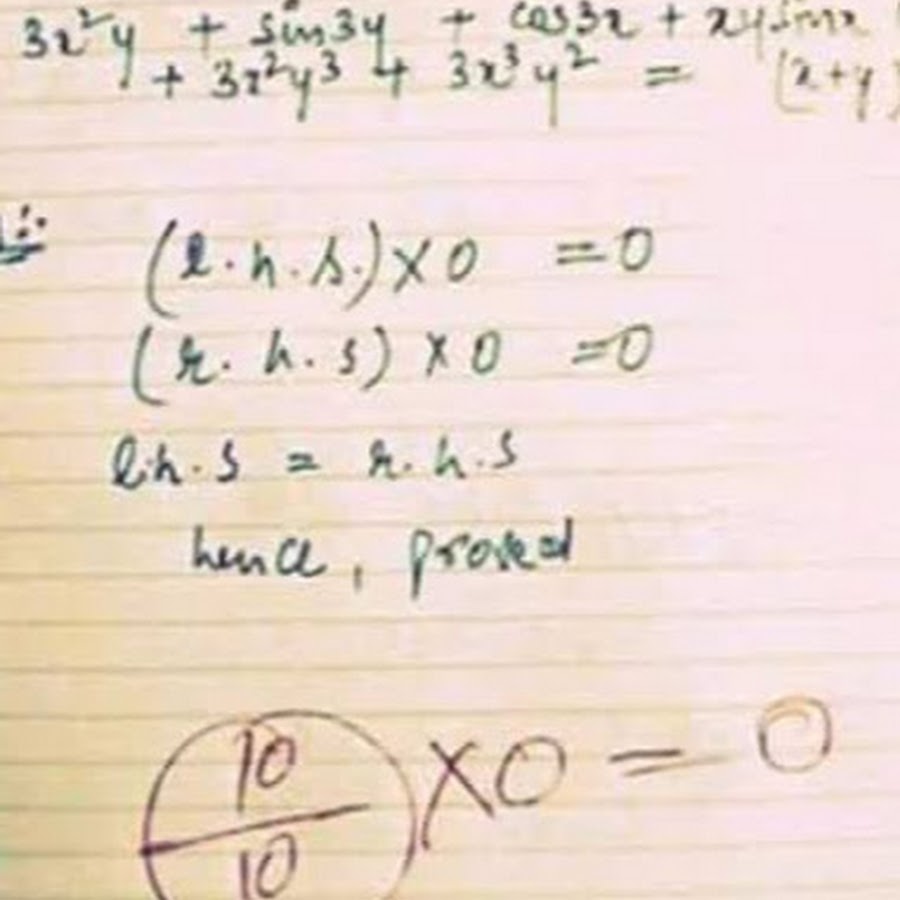 3x²y + sin3y + cos3x + xysinx
+ 3x²y³ + 3x³y² = (x+y)
(l.h.s.)×0 =0
(r.h.s)×0 =0
l.h.s = r.h.s
hence, proved
10
10
×0 = 0